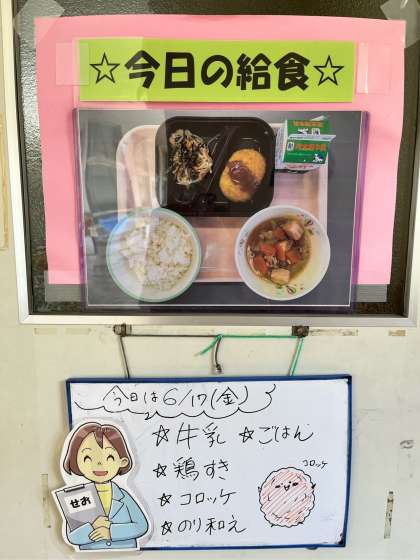 ☆今日の給食☆
今日は6/17(金)
☆牛乳 ☆ごはん
☆鶏すき
☆コロッケ
☆のり和え
コロッケ
せお